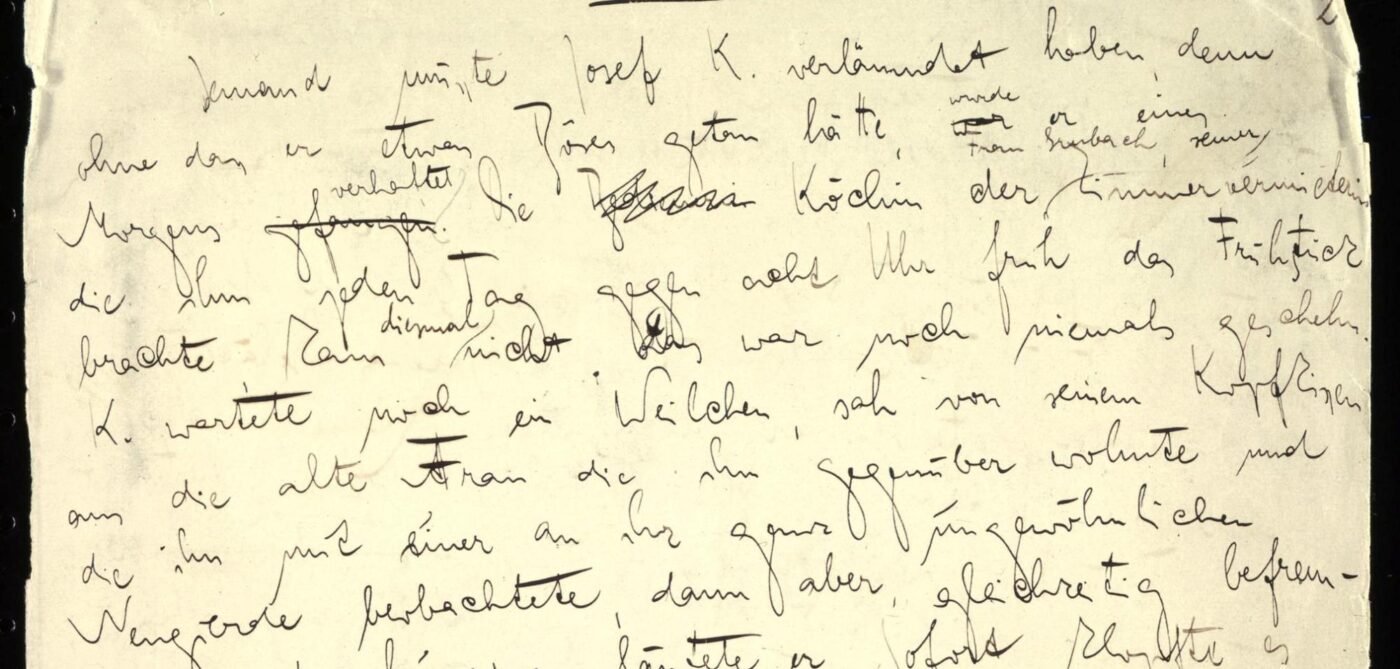 2
Jemand musste Josef K. verläumdet haben, denn
ohne dass er etwas Böses getan hätte, war wurde er eines
Morgens gefangen verhaftet. Die Köchin der Frau Grubach, seiner Zimmervermieterin
die ihm jeden Tag gegen acht Uhr früh das Frühstück
brachte kam diesmal nicht. Das war noch niemals geschehn.
K. wartete noch ein Weilchen, sah von seinem Kopfkissen
aus die alte Frau die ihm gegenüber wohnte und
die ihn mit einer an ihr ganz ungewöhnlichen
Neugierde beobachtete, dann aber, gleichzeitig befrem-
läutete er. Sofort klopfte es